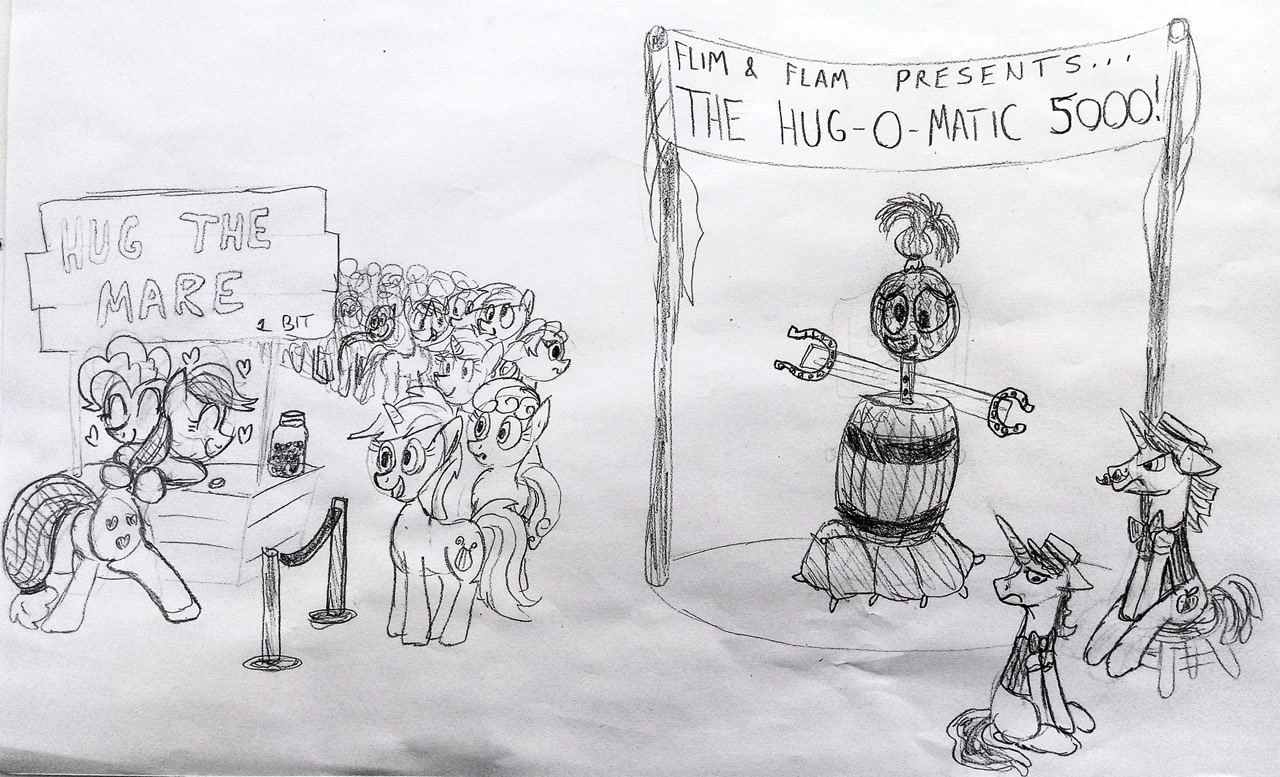 HUG THE
MARE
1 BIT
FLIM & FLAM PRESENTS...
THE HUG-O-MATIC 5000!